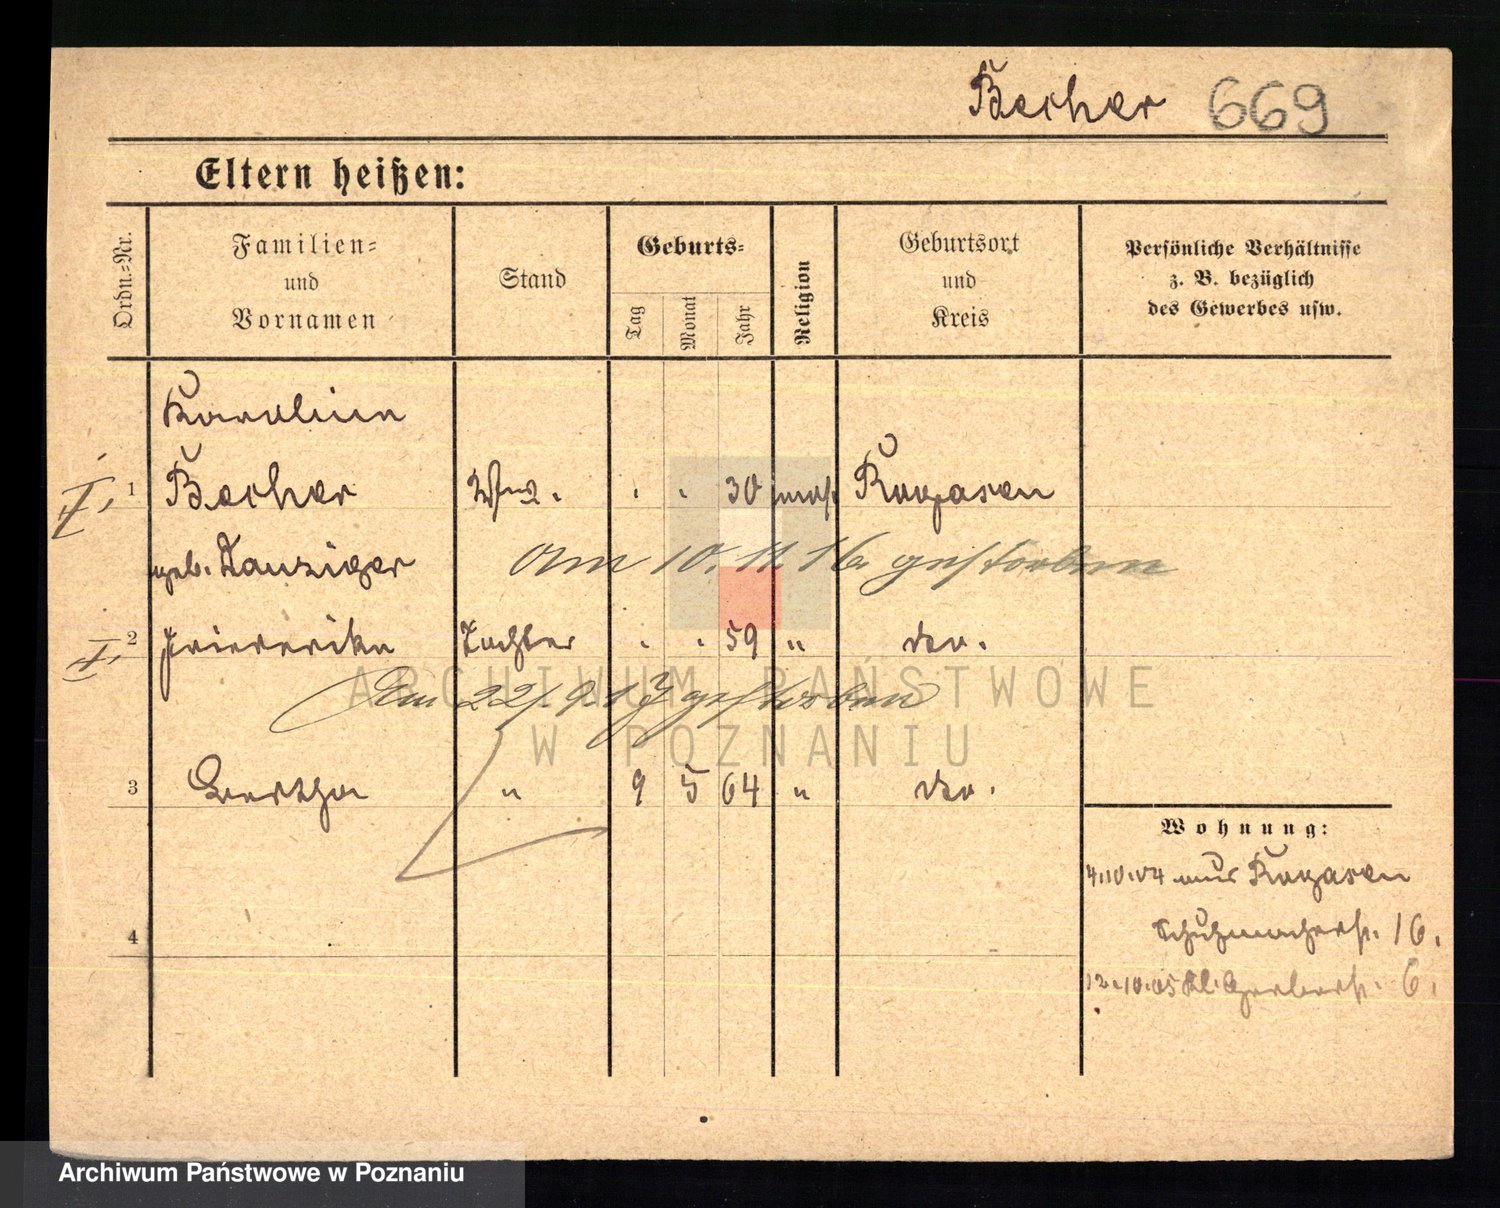 Becher 669
Eltern heißen:
Ordn.-Nr.
Familien- und Vornamen
Stand
Geburts-
Tag
Monat
Jahr
Religion
Geburtsort und Kreis
Persönliche Verhältnisse z. B. bezüglich des Gewerbes usw.
Karoline
I. 1 Becher Wwe. " " 30 mos. Rogasen
geb. Danziger
Am 10. 11. 16 gestorben
I. 2 Friederike Tochter " " 59 " do.
Am 22/9 17 gestorben
3 Bertha " 9 5 64 " do.
4
Wohnung:
4.10.04 aus Rogasen
Schuhmacherst. 16.
12.10.05 Kl. Gerberst. 6.
ARCHIWUM PAŃSTWOWE
W POZNANIU
Archiwum Państwowe w Poznaniu